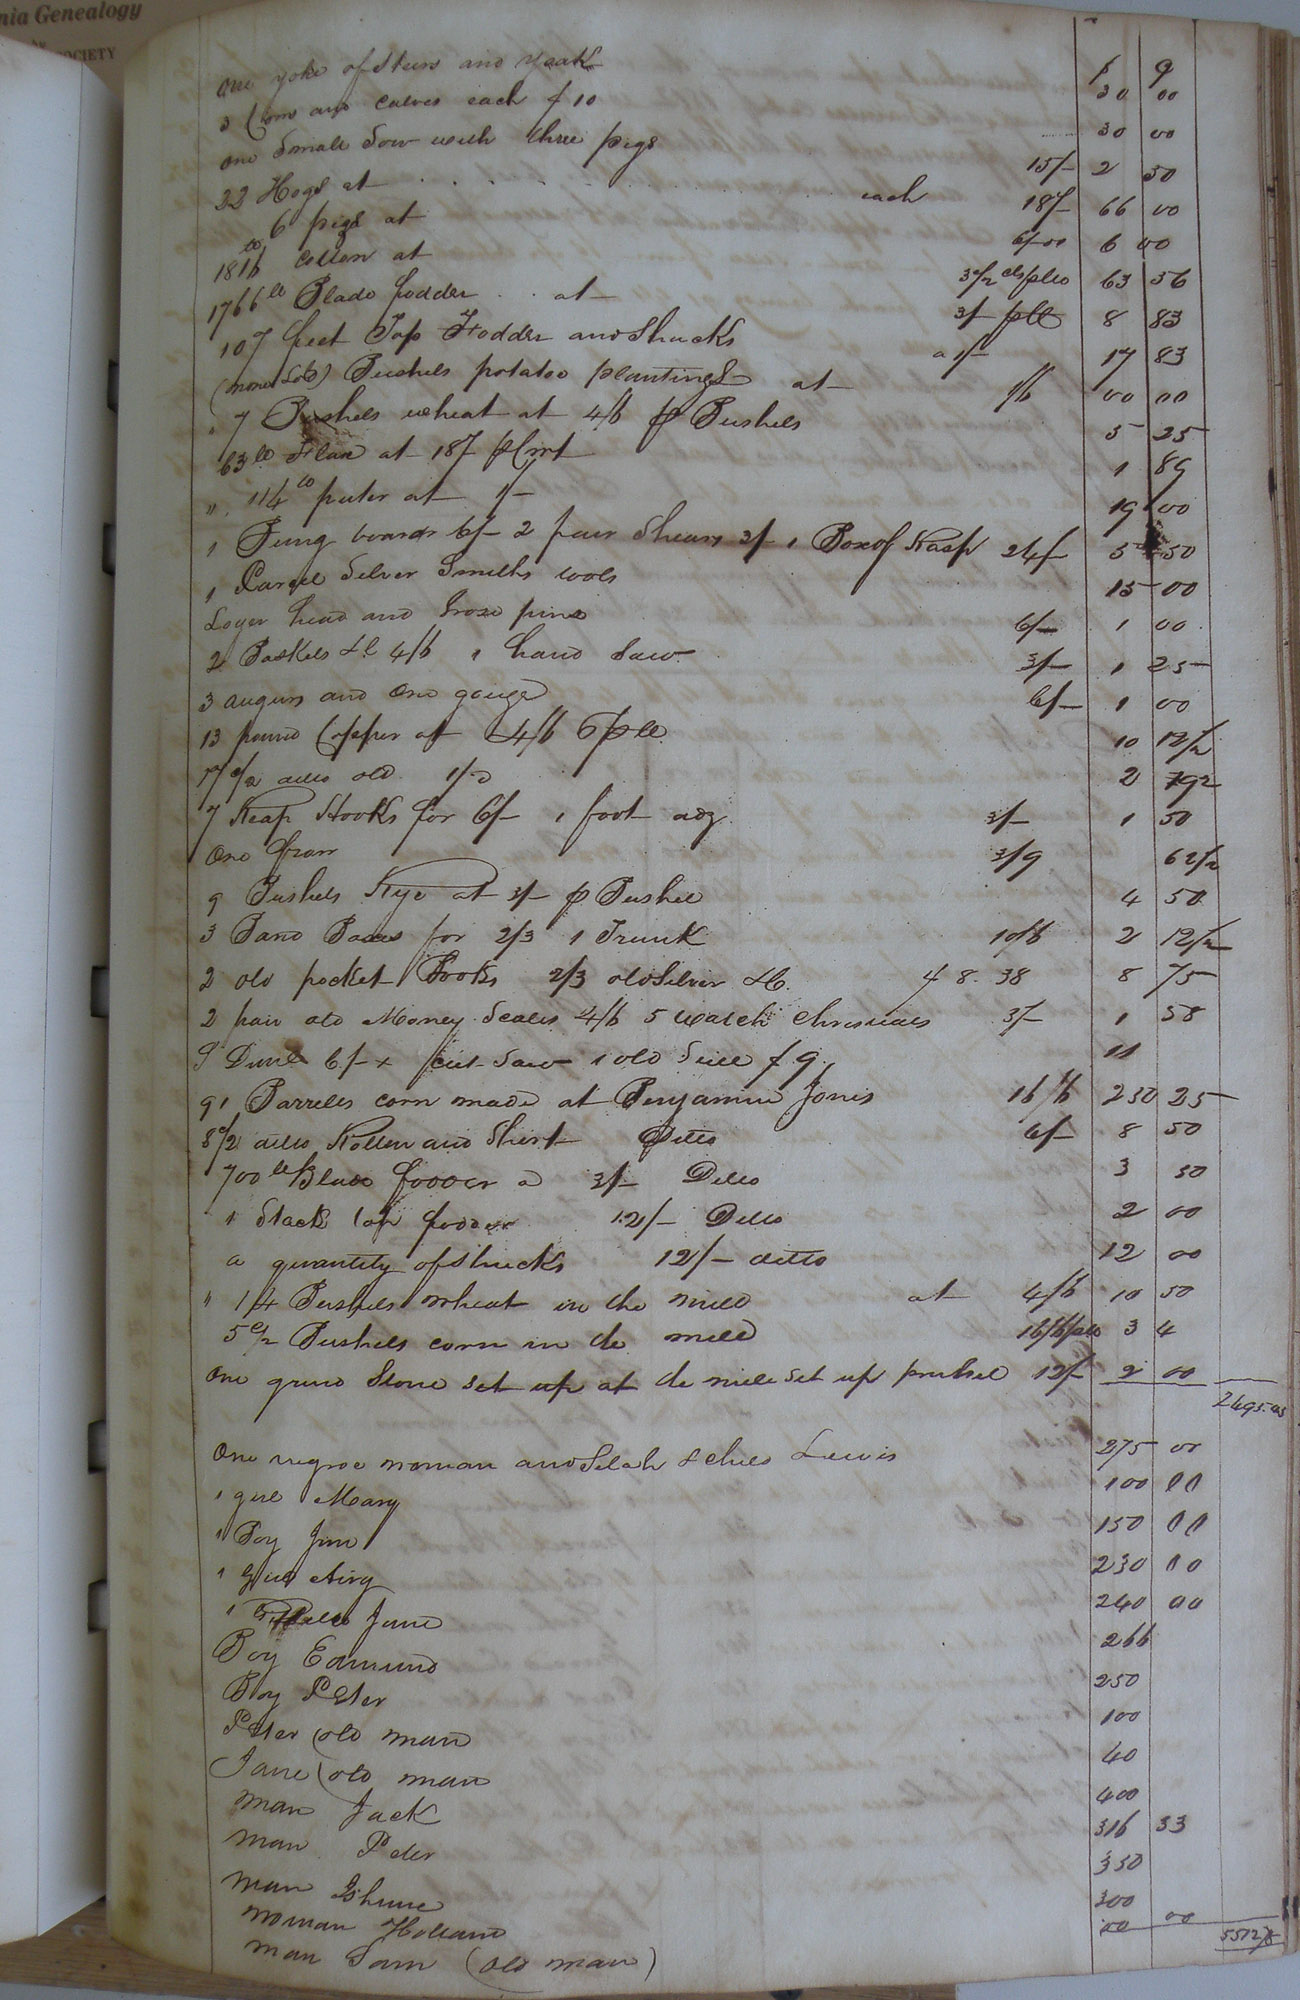 nia Genealogy
SOCIETY
$ 9
One yoke of Steers and 30 00
3 Cows and calves each $10 30 00
One Small Sow with three pigs 15/- 2 50
22 Hogs at each 18/- 66 00
6 pigs at 6/00 6 00
1816 lb Cotten at 3 1/2 cts 63 56
1766 lb Blade fodder at 3/- 8 83
107 feet Top Fodder and Shucks a 1/- 17 83
(none Sold) Bushels potatoe plantings at 1/6 00 00
7 Bushels wheat at 4/6 p Bushels 5 25
63 lb Flax at 18/- 1 89
" 114 lb puter at 1/- 19 00
1 boards 6/- 2 pair Shears 3/- 1 Box of Rasp 24/- 5 50
1 Parcel Silver Smiths tools 15 00
head and pins 6/- 1 00
2 Baskets &c 4/6 1 hand Saw 3/- 1 25
3 augurs and One gouge 6/- 1 00
13 pound Copper at 4/6 10 12/2
17 1/2 ditto old 1/- 2
7 Reap Hooks for 6/- 1 foot adz 3/- 1 50
One 3/9 62/2
9 Bushels Rye at 3/- p Bushel 4 50
3 Band Boxes for 2/3 1 Trunk 10/6 2 12/2
2 old pocket Books 2/3 old Silver &c. 4 8. 38 8 75
2 pair old Money Scales 4/6 5 watch 3/- 1 58
6/- x cut Saw 1 old $9. 11
91 Barrells corn made at Benjamin Jones 16/6 230 25
8 1/2 ditto Rotten and Short Ditto 6/- 8 50
700 lb Blade fodder a 3/- Ditto 3 50
1 Stack top fodder 12/- Ditto 2 00
a quantity of Shucks 12/- ditto 12 00
" 14 Bushels wheat in the mill at 4/6 10 50
5 1/2 Bushels corn in do mill 16/6 3 4
One grind Stone set up at do mill Set up 12/- 2 00
2495.
One negroe woman and Selah & child Lewis 275 00
1 girl Mary 100 00
1 Boy Jim 150 00
1 Girl Airy 230 00
1 June 240 00
Boy Edmund 266
Boy Peter 250
Peter (old man 100
Jane (old man 40
man Jack 400
man Peter 316 33
man 350
woman Holland 300
man Sam (old man) 00 00
5512